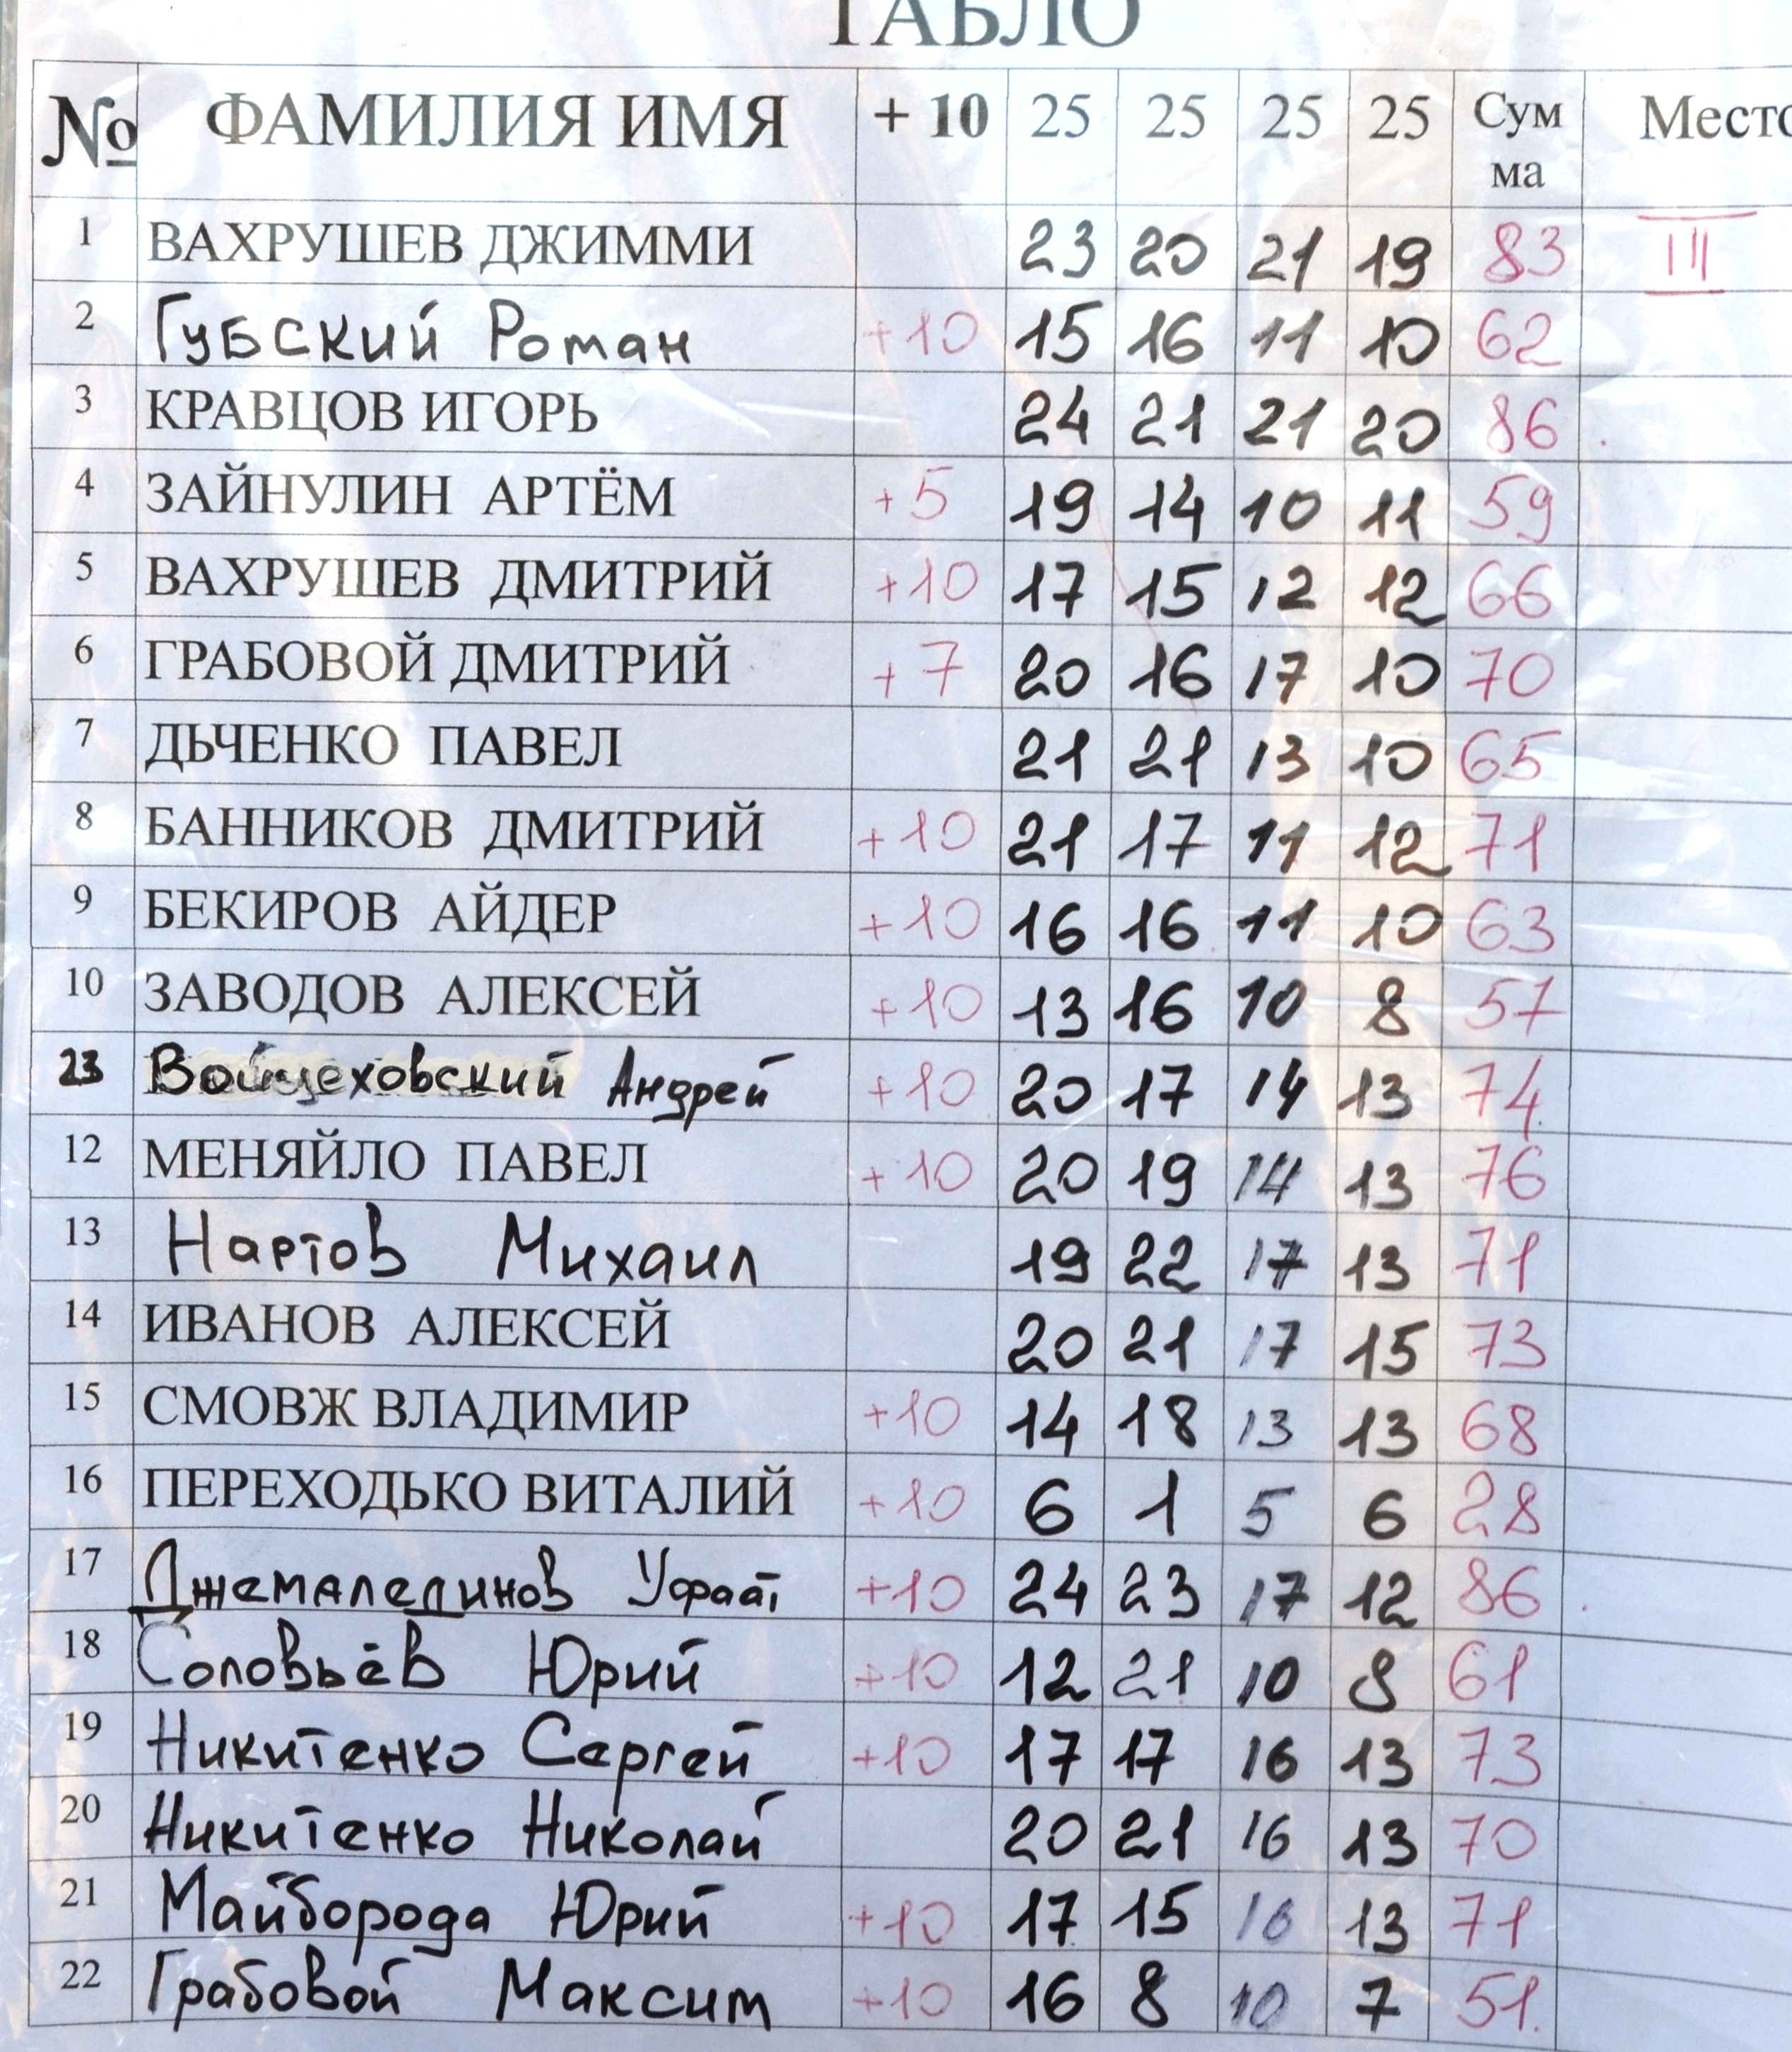 ТАБЛО
№ ФАМИЛИЯ ИМЯ + 10 25 25 25 25 Сум ма Место
1 ВАХРУШЕВ ДЖИММИ 23 20 21 19 83 III
2 Губский Роман +10 15 16 11 10 62
3 КРАВЦОВ ИГОРЬ 24 21 21 20 86
4 ЗАЙНУЛИН АРТЁМ +5 19 14 10 11 59
5 ВАХРУШЕВ ДМИТРИЙ +10 17 15 12 12 66
6 ГРАБОВОЙ ДМИТРИЙ +7 20 16 17 10 70
7 ДЬЧЕНКО ПАВЕЛ 21 21 13 10 65
8 БАННИКОВ ДМИТРИЙ +10 21 17 11 12 71
9 БЕКИРОВ АЙДЕР +10 16 16 11 10 63
10 ЗАВОДОВ АЛЕКСЕЙ +10 13 16 10 8 57
23 Войцеховский Андрей +10 20 17 14 13 74
12 МЕНЯЙЛО ПАВЕЛ +10 20 19 14 13 76
13 Нартов Михаил 19 22 17 13 71
14 ИВАНОВ АЛЕКСЕЙ 20 21 17 15 73
15 СМОВЖ ВЛАДИМИР +10 14 18 13 13 68
16 ПЕРЕХОДЬКО ВИТАЛИЙ +10 6 1 5 6 28
17 Джемалединов Уфаат +10 24 23 17 12 86
18 Соловьёв Юрий +10 12 21 10 8 61
19 Никитенко Сергей +10 17 17 16 13 73
20 Никитенко Николай 20 21 16 13 70
21 Майборода Юрий +10 17 15 16 13 71
22 Грабовой Максим +10 16 8 10 7 51